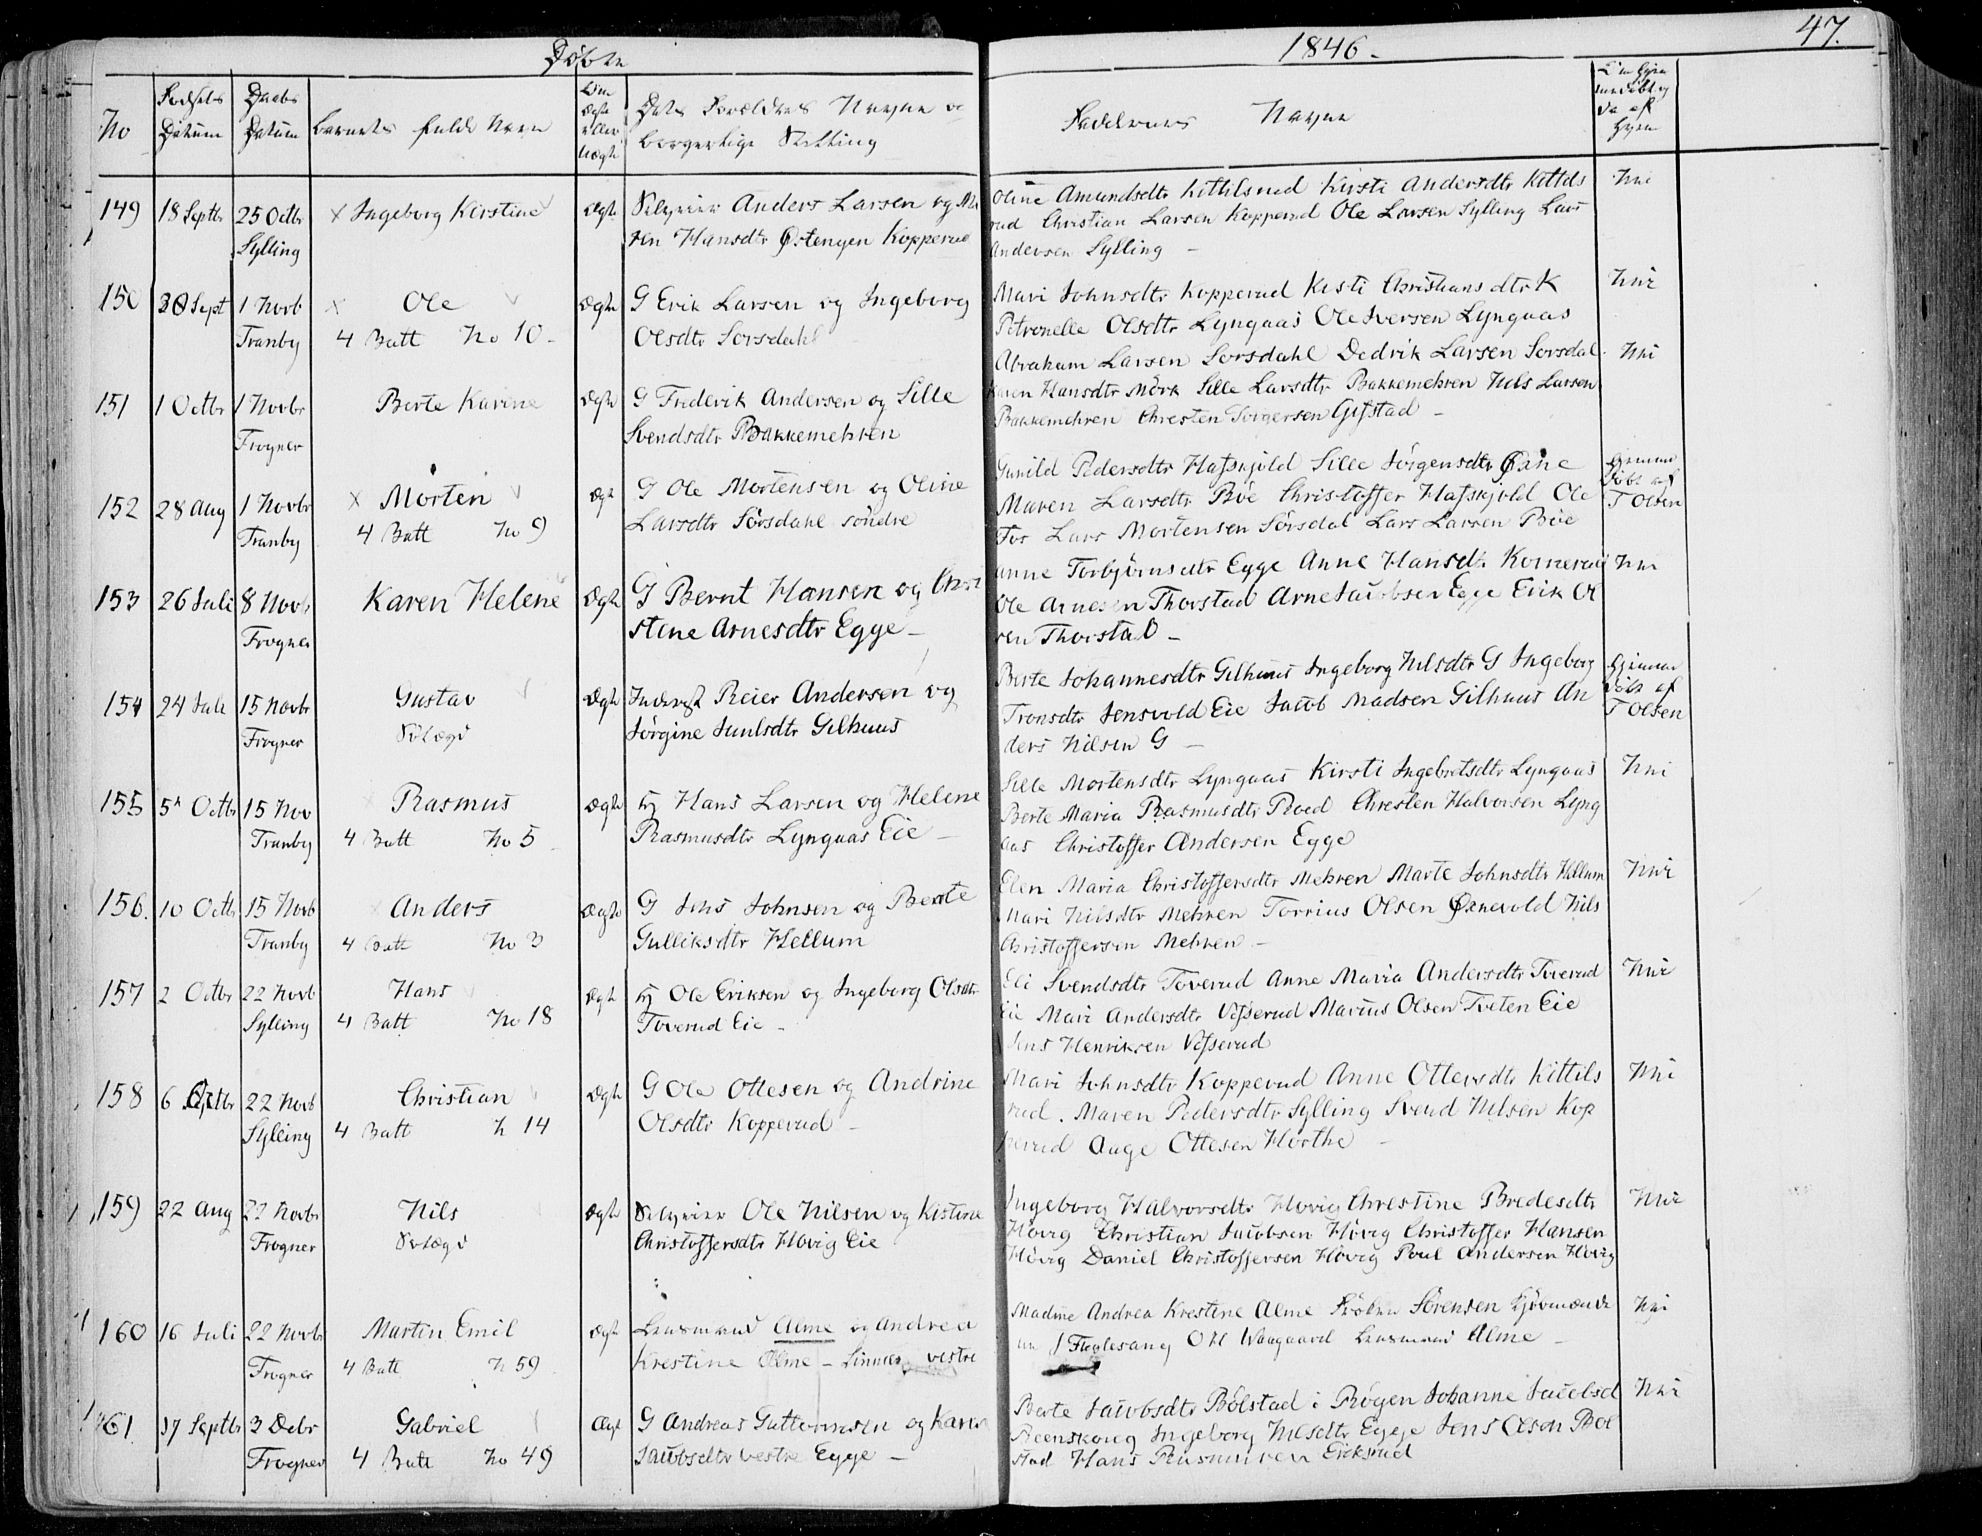 Døbte
1846.
47.
No
Fødsels Datum
Daabs Datum
Barnets fulde Navn
Om Ægte eller Uægte
Dets Forældres Navne og borgerlige Stilling
Faddernes Navne
149 18 Septbr 25 Octbr Sylling
Ingeborg Kirstine
Ægte
Selveier Anders Larsen og Ma
ren Hansdtr Østengen Kopperud
Oline Amundsdtr Kittilsrud Kirsti Andersdtr Kittils
rud Christian Larsen Kopperud Ole Larsen Sylling Lars
Andersen Sylling
Nei
150 30 Sept 1 Novb Tranby
Ole
4 Batt No 10
Ægte
G Erik Larsen og Ingeborg
Olsdtr Sorsdahl
Mari Johnsdtr Kopperud Kisti Christians dtr K
Petronelle Olsdtr Lyngaas Ole Iversen Lyngaas
Abraham Larsen Sorsdahl Dedrik Larsen Sorsdal
Nei
151 1 Octbr 1 Novbr Frogner
Berte Karine
Ægte
G Frederik Andersen og Sille
Svendsdtr Bakkemehren
Karen Hansdtr Mörk Sille Larsdtr Bakkemehren Nels Larsen
Bakkemehren Chresten Torgersen Gifstad
Nei
152 28 Aug 1 Novbr Tranby
Morten
4 Batt No 9
Ægte
G Ole Mortensen og Oline
Larsdtr Sörsdahl söndre
Gunild Pedersdtr Hafskjold Sille Jörgensdtr
Maren Larsdtr Böe Christoffer Hafskjold Ole
Fos Lars Mortensen Sörsdal Lars Larsen Böe
Hjemme døbt af T Olsen
153 26 Juli 8 Novb Frogner
Karen Helene
Ægte
G Bernt Hansen og Chri
stine Arnesdtr Egge
Anne Torbjörnsdtr Egge Anne Hansdtr
Ole Arnesen Thorstad Arne Jacobsen Egge Erik Ol
sen Thorstad
Nei
154 24 Juli 15 Novbr Frogner
Gustav
Ægte
Inderst Reier Andersen og
Jörgine Gilhuus
Berte Johannesdtr Gilhuus Ingeborg Nilsdtr G Ingeborg
Tronsdtr Jensvold Eie Jacob Madsen Gilhuus An
ders Nilsen G
Hjemme døbt af T Olsen
155 5 Octbr 15 Nov Tranby
Rasmus
4 Batt No 5
Ægte
Hans Larsen og Helene
Rasmusdtr Lyngaas Eie
Sille Mortensdtr Lyngaas Kirsti Ingebretsdtr Lyngaas
Berte Maria Rasmusdtr Roed Chresten Halvorsen Lyng
aas Christoffer Andersen Egge
Nei
156. 10 Octbr 15 Novb Tranby
Anders
4 Batt No 3
Ægte
G Jens Johnsen og Berte
Gulliksdtr Hellum
Elen Maria Christoffersdtr Mehren Marte Johnsdtr Hellum
Mari Nilsdtr Mehren Torrius Olsen Nils
Christoffersen Mehren
Nei
157 2 Octbr 22 Novb Sylling
Hans
4 Batt No 18
Ægte
Ole Eriksen og Ingeborg Olsdtr
Toverud Eie
Svendsdtr Toverud Anne Maria Andersdtr Toverud
Eie Mari Andersdtr Vefserud Marius Olsen Tveten Eie
Jens Henriksen Vefserud
Nei
158 6 22 Novb Sylling
Christian
4 Batt N 14
Ægte
G Ole Ottesen og Andrine
Olsdtr Kopperud
Mari Johnsdtr Kopperud Anne Ottersdtr Kittils
rud. Maren Pedersdtr Sylling Svend Nilsen Kop
perud Auge Ottesen Horthe
Nei
159 22 Aug 22 Novbr Frogner
Nils
Ægte
Selveier Ole Nilsen og Kistine
Christoffersdtr Hövig Eie
Ingeborg Halvorsdtr Hövig Chrestine Bredesdtr
Hövig Christian Jacobsen Hövig Christoffer Hansen
Hövig Daniel Christoffersen Hövig Poul Andersen Hövig
Nei
160 16 Juli 22 Novbr Frogner
Martin Emil
4 Batt N 59
Ægte
Lensmand Alme og Andrea
Krestine Alme – vestre
Madme Andrea Krestine Alme Sörensen
Waagaard Lensmand Alme
Nei
161. 17 Septbr 3 Debr Frogner
Gabriel
4 Batt No 49
Ægt
G Andreas Guttormsen og Karen
Jacobsdtr vestre Egge
Berte Jacobsdtr Bölstad i Rögen Johanne Jacobsd
Ingeborg Nilsdtr Egge Jens Olson Böl
stad Hans Rasmussen Eriksrud
Nei